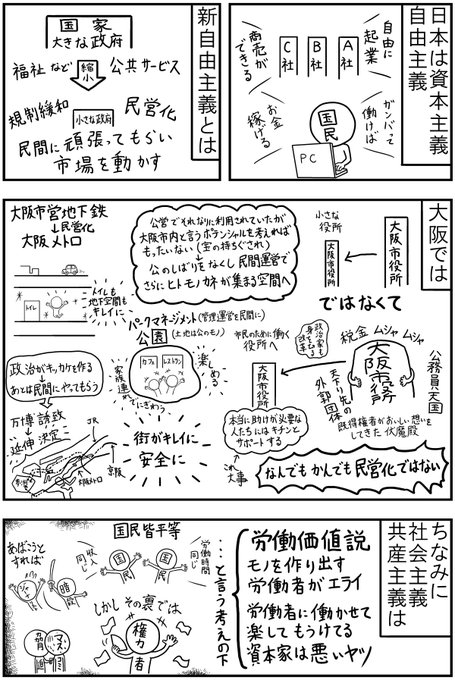 日本は資本主義
自由主義
自由に
起業
A社
B社
C社
商売が
できる
ガンバって
働けば
国民
PC
お金
稼げる
新自由主義とは
国家
大きな政府
福祉など
縮小
公共サービス
規制緩和
小さな政府
民営化
民間に頑張ってもらい
市場を動かす
大阪では
大阪市役所
小さな
役所
大阪市役所
ではなくて
公務員天国
税金 ムシャ ムシャ
大阪市役所
天下り先の
外郭団体
既得権者がおいしい想いを
してきた 伏魔殿
政治家も
身を切る
改革
市民のために働く
役所へ
大阪市役所
本当に助けが必要な
人たちにはキチンと
サポートする
これ
大事
なんでもかんでも民営化ではない
大阪市営地下鉄
↓民営化
大阪メトロ
公営でそれなりに利用されていたが
大阪市内と言うポテンシャルを考えれば
もったいない(宝の持ちぐされ)
↓
公のしばりをなくし民間運営で
さらにヒトモノカネが集まる空間へ
トイレ
トイレも
地下空間も
キレイに
パークマネージメント(管理運営を民間に)
公園(土地は公のモノ)
カフェ
レストラン
楽しめる
家族連れで
にぎわう
政治がキッカケを作る
あとは民間にやってもらう
万博誘致
延伸決定
JR
京阪
大阪メトロ
街がキレイに
安全に
ちなみに
社会主義
共産主義は
労働価値説
モノを作り出す
労働者がエライ
労働者に働かせて
楽してもうけてる
資本家は悪いヤツ
…と言う考えの下
国民皆平等
労働時間
同じ
国民
国民
収入
同じ
しかしその裏では
権力者
あばこうと
すれば
ジャマ
暗殺
マスコミ